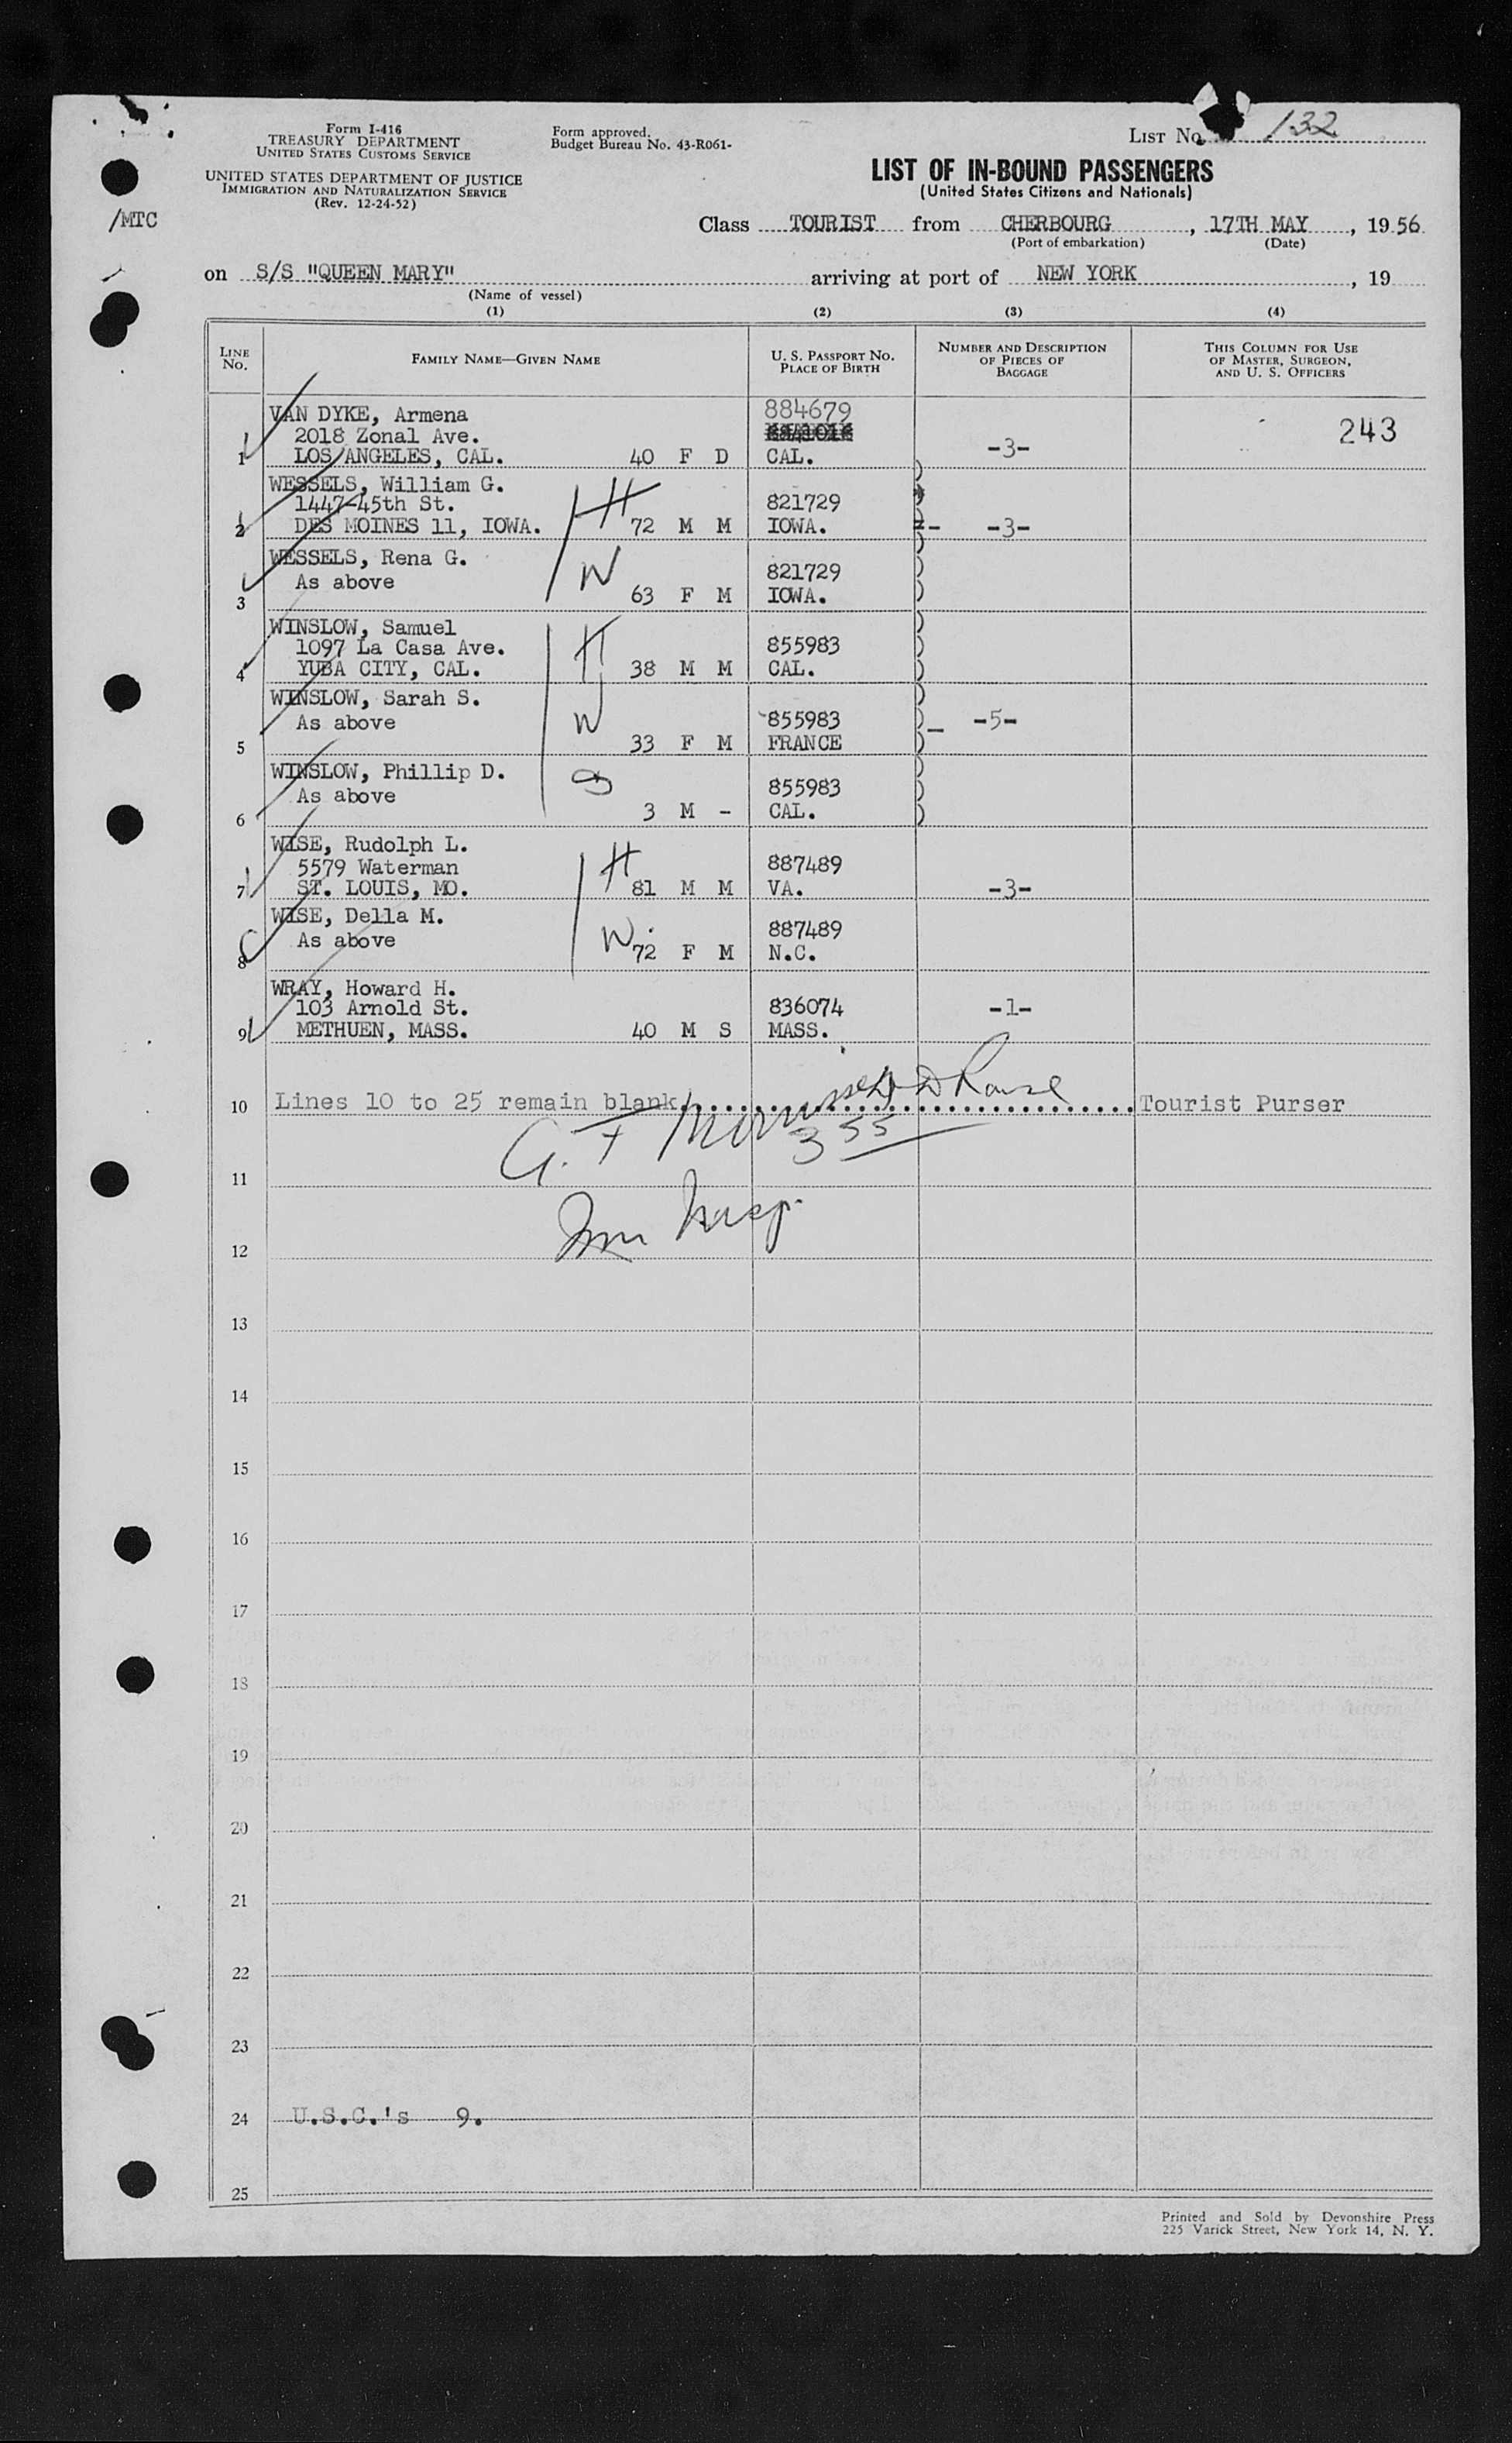 Form I-416
TREASURY DEPARTMENT
UNITED STATES CUSTOMS SERVICE
UNITED STATES DEPARTMENT OF JUSTICE
IMMIGRATION AND NATURALIZATION SERVICE
(Rev. 12-24-52)
Form approved.
Budget Bureau No. 43-R061-
LIST No. 132
LIST OF IN-BOUND PASSENGERS
(United States Citizens and Nationals)
/MTC
Class TOURIST from CHERBOURG, 17TH MAY, 1956
(Port of embarkation) (Date)
on S/S "QUEEN MARY" arriving at port of NEW YORK, 19
(Name of vessel)
(1) (2) (3) (4)
LINE No. FAMILY NAME—GIVEN NAME U. S. PASSPORT NO. PLACE OF BIRTH NUMBER AND DESCRIPTION OF PIECES OF BAGGAGE THIS COLUMN FOR USE OF MASTER, SURGEON, AND U. S. OFFICERS
VAN DYKE, Armena 884679
2018 Zonal Ave. 243
1 LOS ANGELES, CAL. 40 F D CAL. -3-
WESSELS, William G.
1447-45th St. H 821729
2 DES MOINES 11, IOWA. 72 M M IOWA. -3-
WESSELS, Rena G.
As above W 821729
3 63 F M IOWA.
WINSLOW, Samuel
1097 La Casa Ave. H 855983
4 YUBA CITY, CAL. 38 M M CAL.
WINSLOW, Sarah S.
As above W 855983 -5-
5 33 F M FRANCE
WINSLOW, Phillip D.
As above 855983
6 3 M - CAL.
WISE, Rudolph L.
5579 Waterman H 887489
7 ST. LOUIS, MO. 81 M M VA. -3-
WISE, Della M.
As above W 887489
8 72 F M N.C.
WRAY, Howard H.
103 Arnold St. 836074 -1-
9 METHUEN, MASS. 40 M S MASS.
10 Lines 10 to 25 remain blank. Tourist Purser
355
11
Imm Insp.
12
13
14
15
16
17
18
19
20
21
22
23
24 U.S.C.'s 9.
25
Printed and Sold by Devonshire Press
225 Varick Street, New York 14, N. Y.